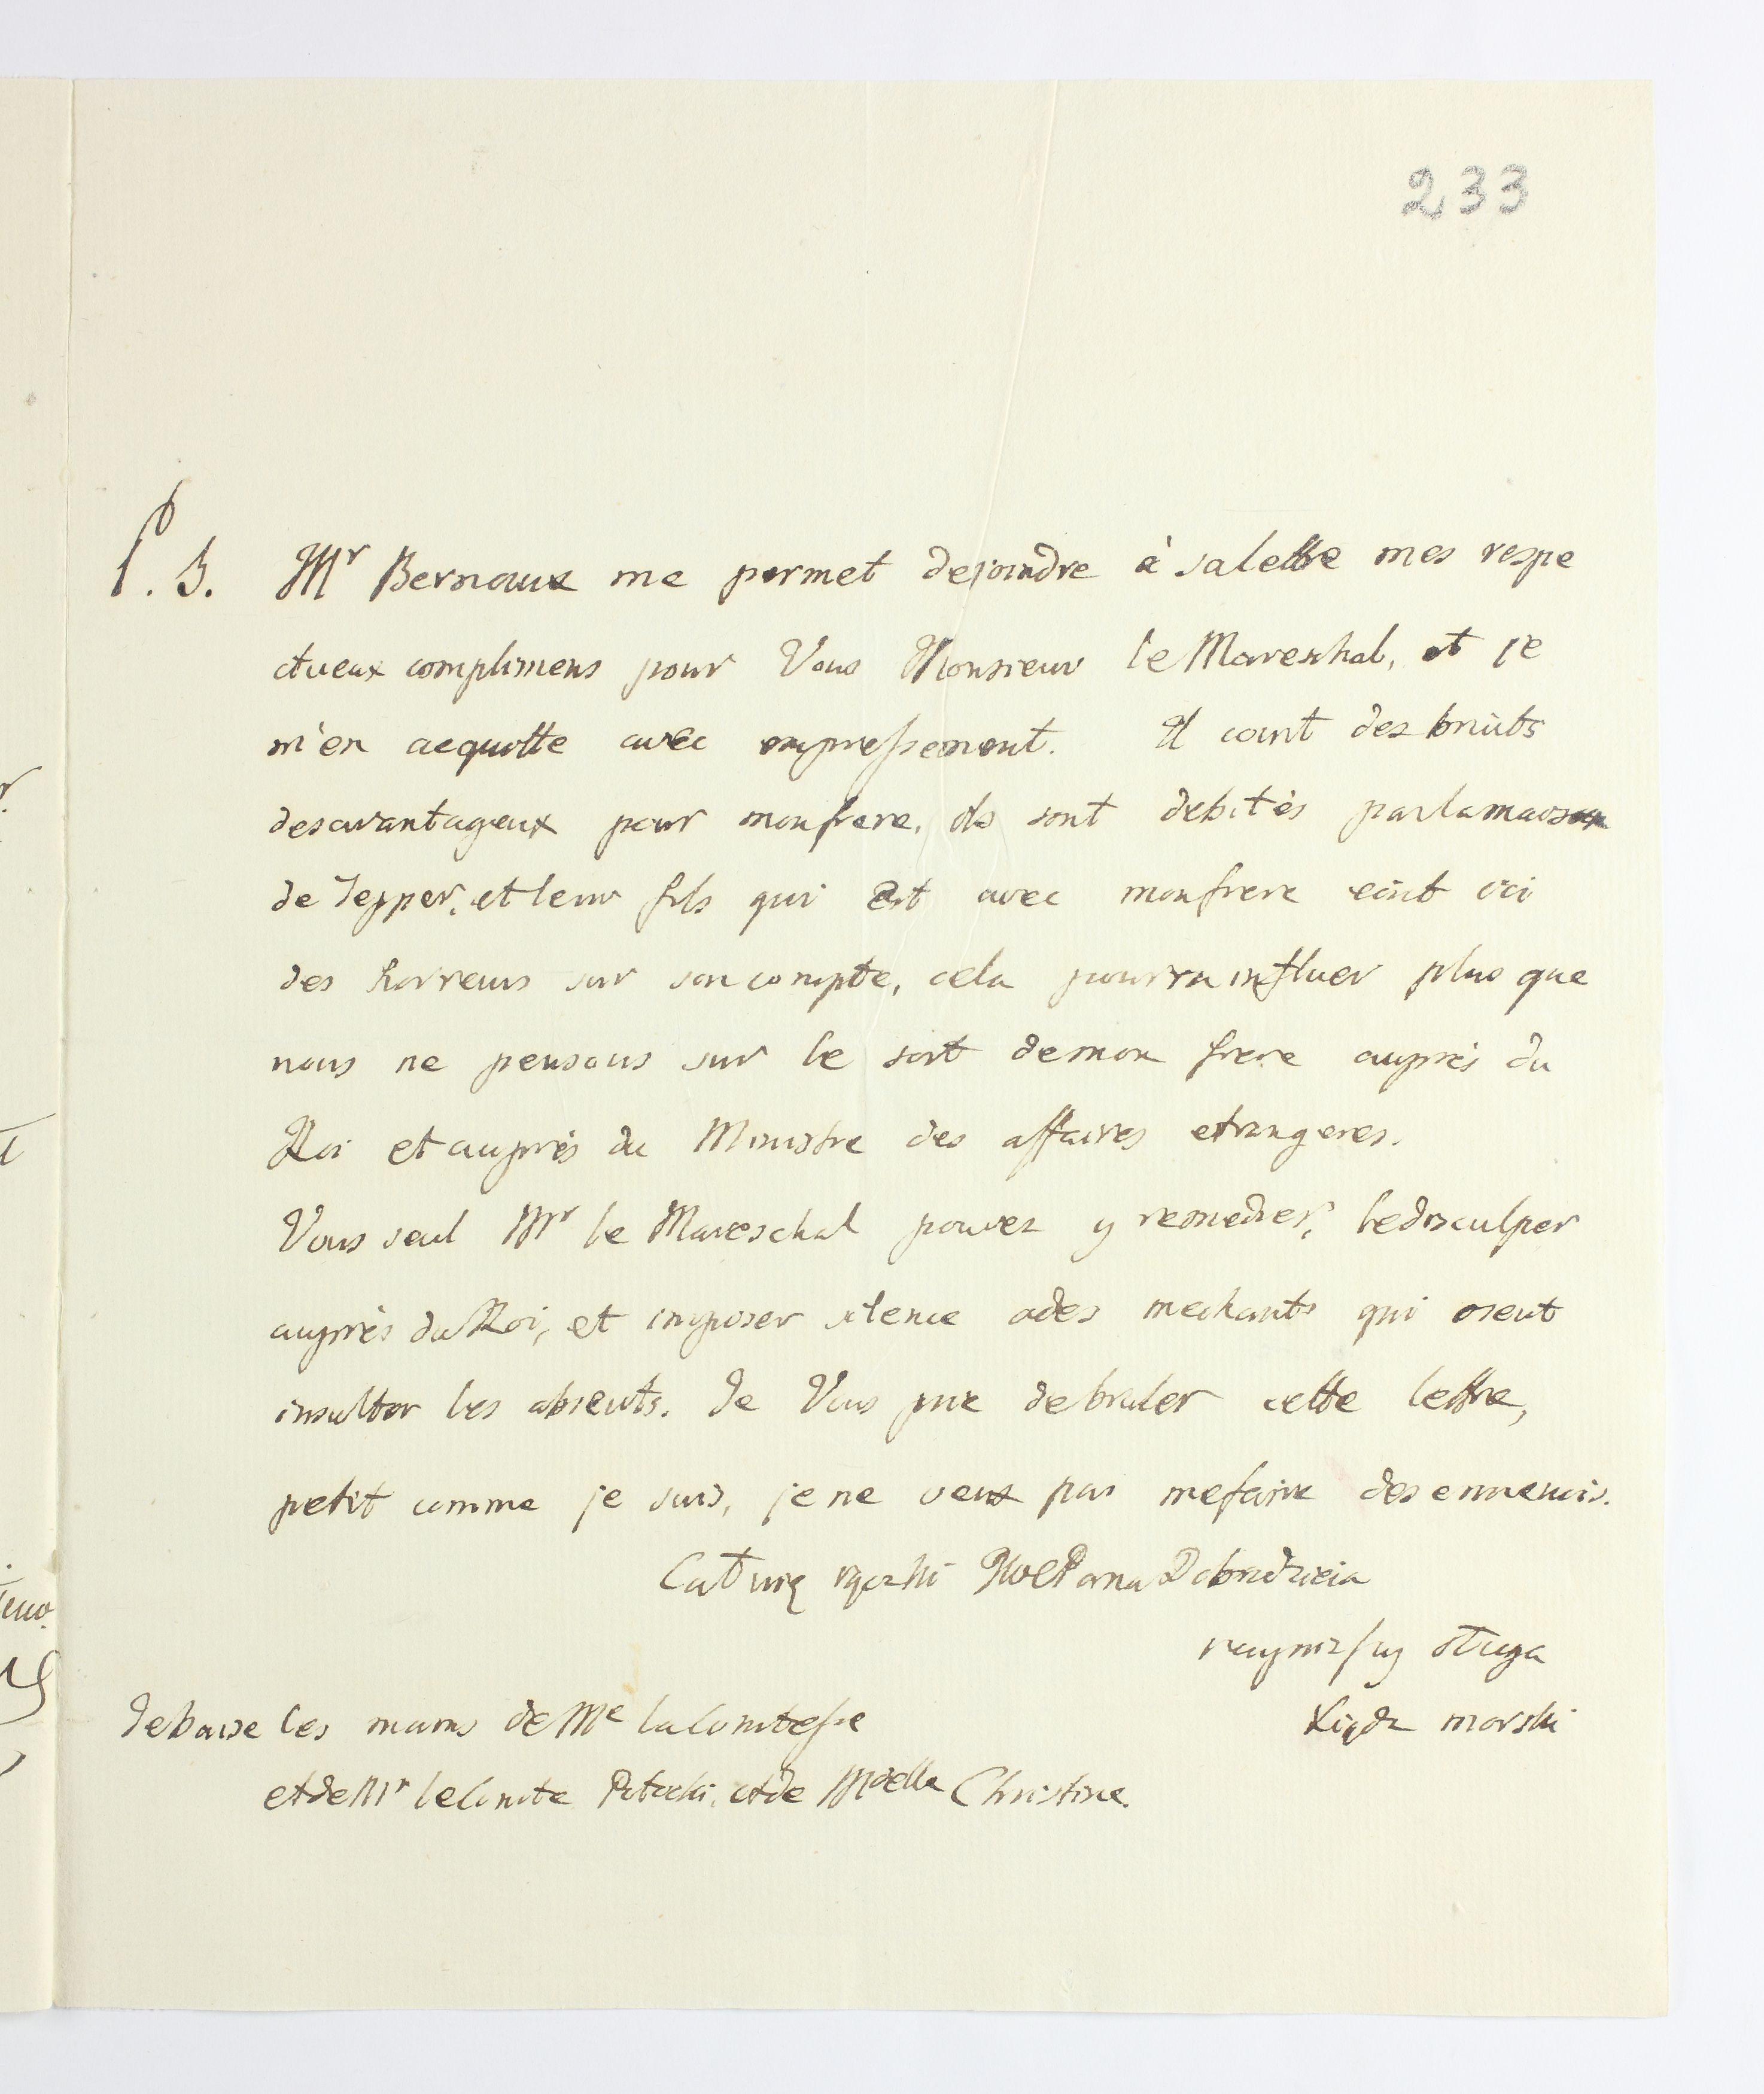 233
P. S. Mr Bernaux me permet de joindre à sa lettre mes respe
ctueux complimens pour Vous Monsieur le Mareschal, et je
m'en acquitte avec empressement. Il court des bruits
desavantageux pour mon frere, ils sont debités par la maison
de Tepper, et leur fils qui est avec mon frere ecrit ici
des horreurs sur son compte, cela pourra influer plus que
nous ne pensons sur le sort de mon frere auprès du
Roi et auprès du Ministre des affaires etrangeres.
Vous seul Mr le Mareschal pouvez y remedier, le disculper
auprès du Roi, et imposer silence a des mechants qui osent
insulter les absents. Je Vous prie de bruler cette lettre,
petit comme je suis, je ne veux pas me faire des ennemis.
Całuię rączki JWPana Dobrodzieia
nayniższy sługa
Xiądz Morski
Je baise les mains de Me la Comtesse
et de Mr le Comte Potocki, et de Mdelle Christine.